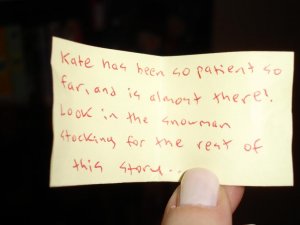 Kate has been so patient so
far, and is almost there!
Look in the snowman
stocking for the rest of
this story...